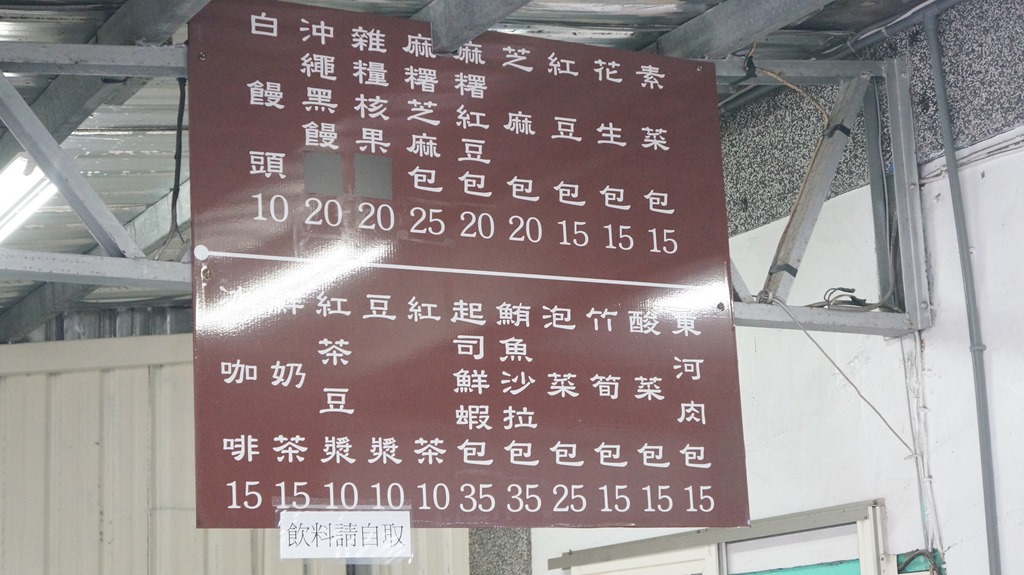 素菜包 15
花生包 15
紅豆包 15
芝麻包 20
麻糬紅豆包 20
麻糬芝麻包 25
雜糧核果 20
沖繩黑饅 20
白饅頭 10
東河肉包 15
酸菜包 15
竹筍包 15
泡菜包 25
鮪魚沙拉包 35
起司鮮蝦包 35
紅茶 10
豆漿 10
紅茶豆漿 10
鮮奶茶 15
咖啡 15
飲料請自取